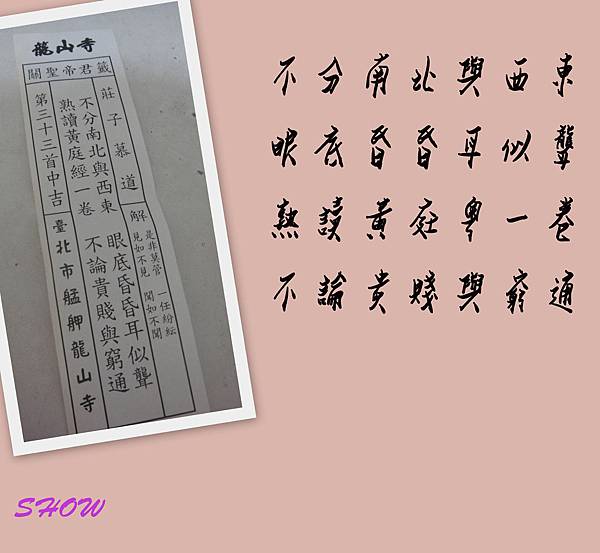 龍山寺
關聖帝君籤
莊子慕道
解
是非莫管 一任紛紜
見如不見 聞如不聞
不分南北與西東 眼底昏昏耳似聾
熟讀黃庭經一卷 不論貴賤與窮通
第三十三首中吉 臺北市艋舺龍山寺
不分南北與西東
眼底昏昏耳似聾
熱讀黃庭粵一卷
不論貴賤與窮通
SHOW